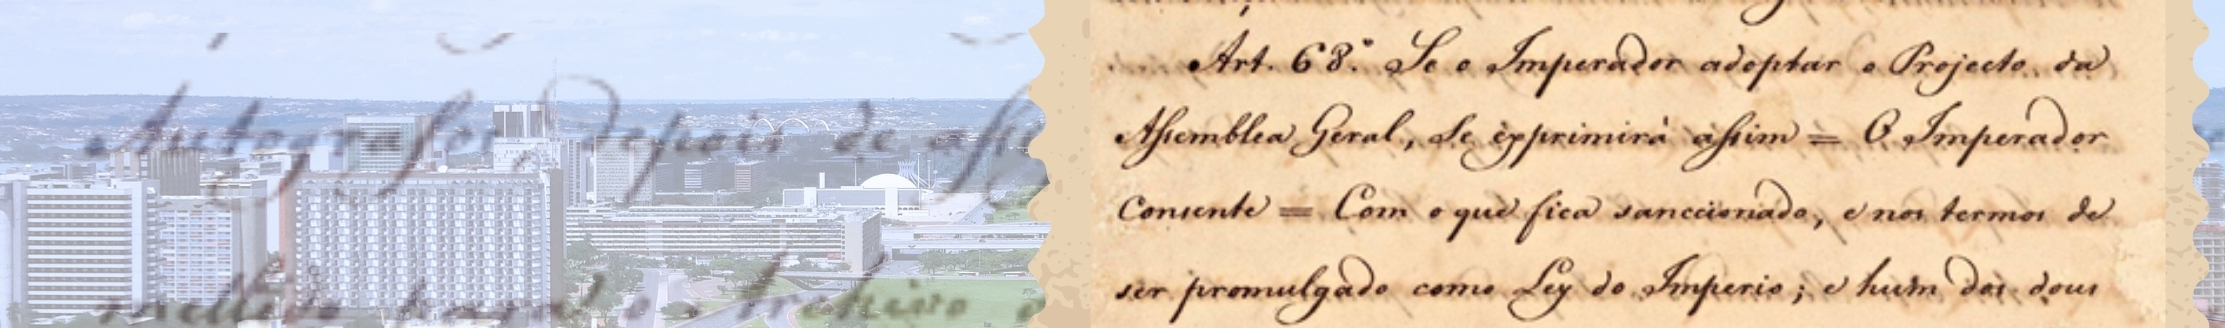 Autografos, depois de
remettido para o Archivo
Art. 68.º Se o Imperador adoptar o Projecto da
Assemblea Geral, se exprimirá assim = O Imperador
Consente = Com o que fica sanccionado, e nos termos de
ser promulgado como Ley do Imperio; e hum dos dous